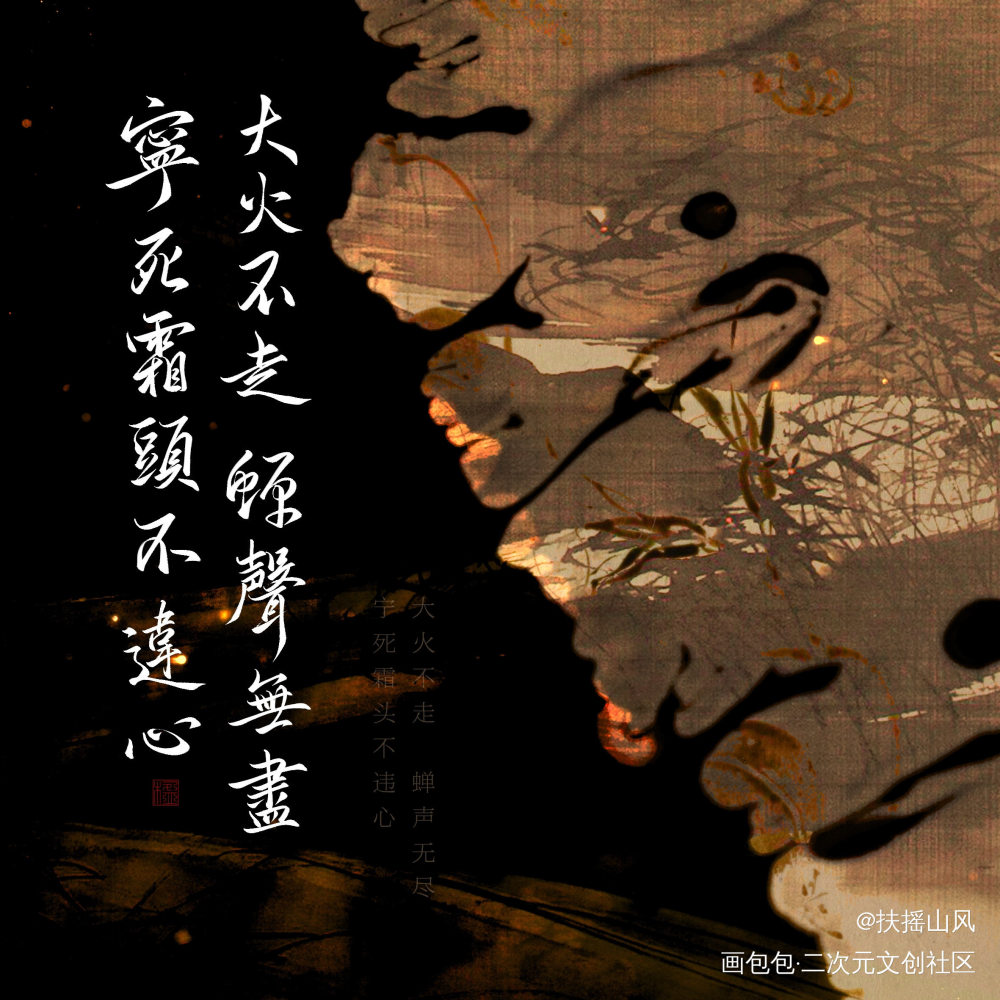 大火不走 蟬聲無盡
寧死霜頭不違心
大火不走 蝉声无尽
宁死霜头不违心
@扶摇山风
画包包·二次元文创社区